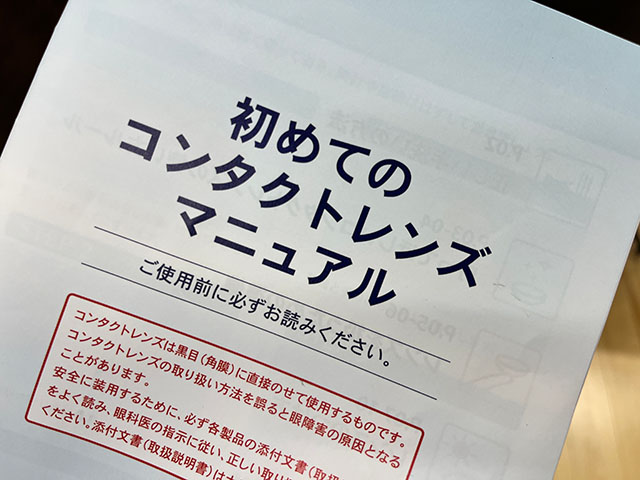 初めての
コンタクトレンズ
マニュアル
ご使用前に必ずお読みください。
コンタクトレンズは黒目（角膜）に直接のせて使用するものです。
コンタクトレンズの取り扱い方法を誤ると眼障害の原因となる
ことがあります。
安全に装用するために、必ず各製品の添付文書（取扱
をよく読み、眼科医の指示に従い、正しい取り
ください。添付文書（取扱説明書）は
P.02
P.03-04
P.05-06